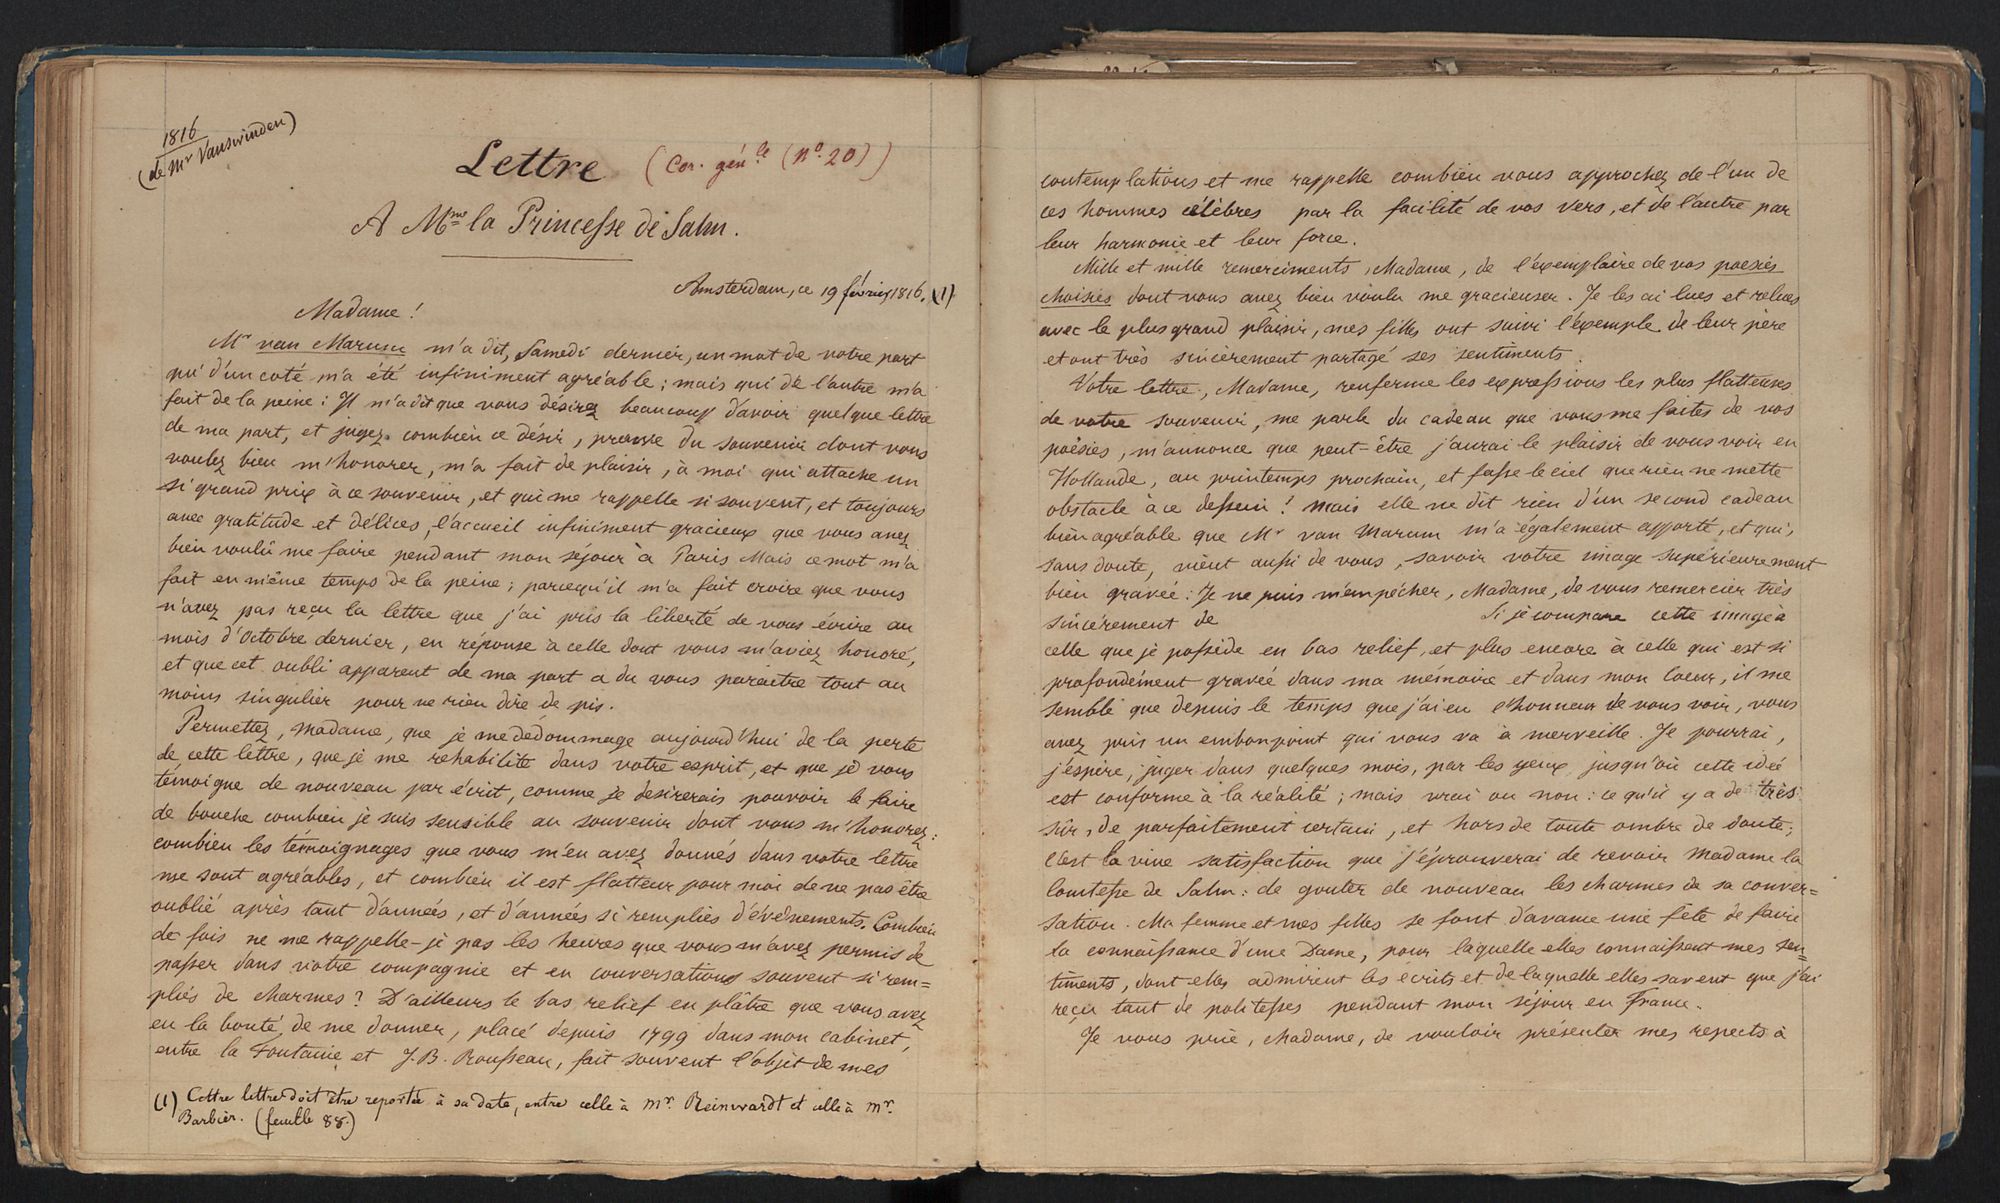 1816
(de Mr Vanswinden)
Lettre (Cor. génle (No. 20))
A Mme la Princesse de Salm.
Amsterdam, ce 19 février 1816. (1)
Madame !
Mr van Marum m'a dit, Samedi dernier, un mot de votre part
qui d'un coté m'a été infiniment agréable ; mais qui de l'autre m'a
fait de la peine : Il m'a dit que vous désirez beaucoup d'avoir quelque lettre
de ma part, et jugez combien ce désir, preuve du souvenir dont vous
voulez bien m'honorer, m'a fait de plaisir, à moi qui attache un
si grand prix à ce souvenir, et qui me rappelle si souvent, et toujours
avec gratitude et délices, l'accueil infiniment gracieux que vous avez
bien voulû me faire pendant mon séjour à Paris Mais ce mot m'a
fait en même temps de la peine ; parcequ'il m'a fait croire que vous
n'avez pas reçu la lettre que j'ai pris la liberté de vous écrire au
mois d'Octobre dernier, en réponse à celle dont vous m'aviez honoré,
et que cet oubli apparent de ma part a du vous paraitre tout au
moins singulier pour ne rien dire de pis.
Permettez, Madame, que je me dédommage aujourd'hui de la perte
de cette lettre, que je me rehabilite dans votre esprit, et que je vous
témoigne de nouveau par écrit, comme je desirerais pouvoir le faire
de bouche combien je suis sensible au souvenir dont vous m'honorez :
combien les témoignages que vous m'en avez donnés dans votre lettre
me sont agréables, et combien il est flatteur pour moi de ne pas être
oublié après tant d'années, et d'années si remplies d'événements. Combien
de fois ne me rappelle-je pas les heures que vous m'avez permis de
passer dans votre compagnie et en conversations souvent si rem=
plies de charmes ? D'ailleurs le bas relief en plâtre que vous avez
eu la bonté de me donner, placé depuis 1799 dans mon cabinet,
entre la Fontaine et J. B. Rousseau, fait souvent l'objet de mes
(1) Cette lettre doit être reportée à sa date, entre celle à Mr. Reinwardt et celle à Mr.
Barbier. (feuille 88.)
contemplations et me rappelle combien vous approchez de l'un de
ces hommes célèbres par la facilité de vos vers, et de l'autre par
leur harmonie et leur force.
Mille et mille remerciments, Madame, de l'exemplaire de vos poesies
choisies dont vous avez bien voulu me gracieuser. Je les ai lues et relues
avec le plus grand plaisir, mes filles ont suivi l'exemple de leur père
et ont très sincèrement partagé ses sentiments.
Votre lettre, Madame, renferme les expressions les plus flatteuses
de votre souvenir, me parle du cadeau que vous me faites de vos
poésies, m'annonce que peut-être j'aurai le plaisir de vous voir en
Hollande, au printemps prochain, et fasse le ciel que rien ne mette
obstacle à ce dessein ! Mais elle ne dit rien d'un second cadeau
bien agréable que Mr van Marum m'a également apporté, et qui,
sans doute, vient aussi de vous, savoir votre image supérieurement
bien gravée : Je ne puis m'empécher, Madame, de vous remercier très
sincèrement de Si je compare cette image à
celle que je possède en bas relief, et plus encore à celle qui est si
profondément gravée dans ma mémoire et dans mon Coeur, il me
semble que depuis le temps que j'ai eu l'honneur de vous voir, vous
avez pris un embonpoint qui vous va à merveille. Je pourrai,
j'espère, juger dans quelques mois, par les yeux, jusqu'où cette idée
est conforme à la réalité ; mais vrai ou non : ce qu'il y a de très
sûr, de parfaitement certain, et hors de toute ombre de doute,
c'est la vive satisfaction que j'éprouverai de revoir Madame la
Comtesse de Salm : de gouter de nouveau les charmes de sa conver=
sation. Ma femme et mes filles se font d'avance une fête de faire
la connaissance d'une Dame, pour laquelle elles connaissent mes sen=
timents, dont elles admirent les écrits et de laquelle elles savent que j'ai
reçu tant de politesses pendant mon séjour en France.
Je vous prie, Madame, de vouloir présenter mes repects à